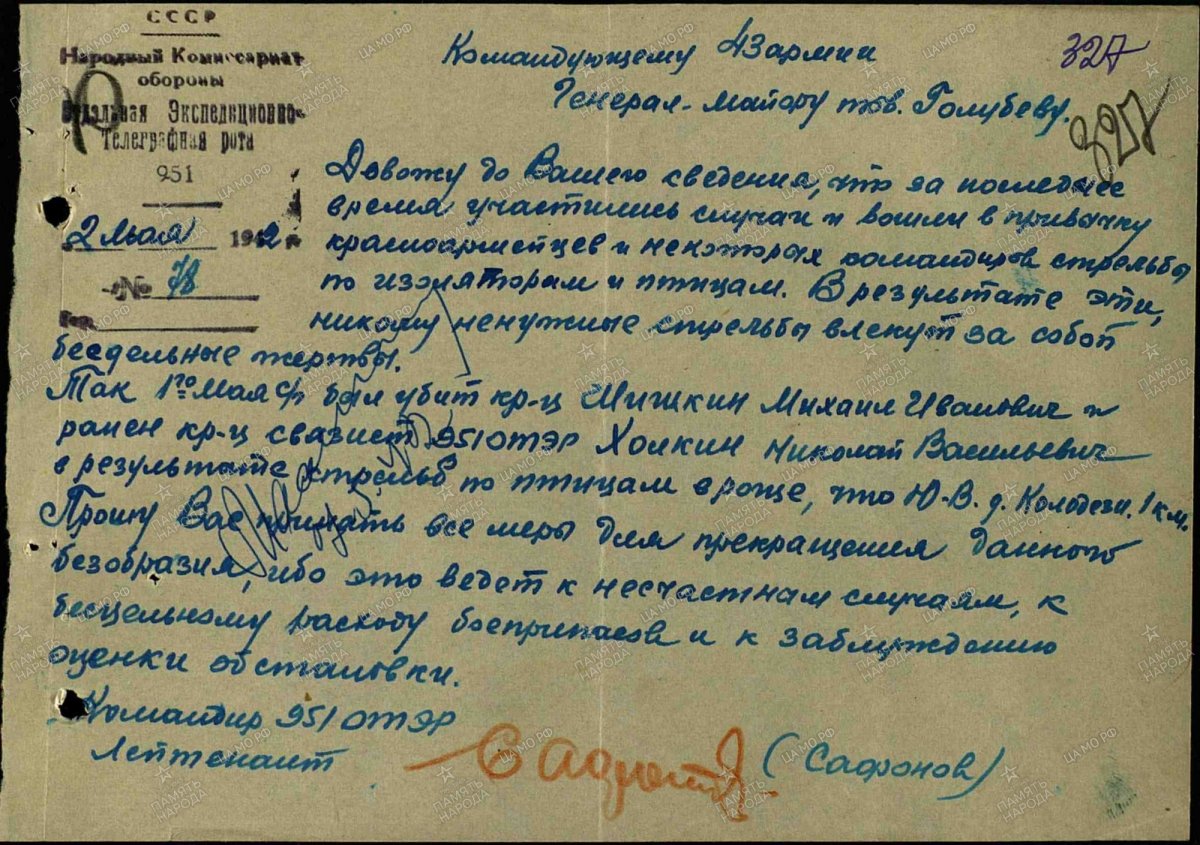 СССР
Народный Комиссариат
обороны
Отдельная Экспедиционно-
Телеграфная рота
951
2 мая 1942 г.
№ 78
Гор.
Командующему 43 армии
Генерал-майору тов. Голубеву.
327
327
Довожу до Вашего сведения, что за последнее
время участились случаи и вошли в привычку
красноармейцев и некоторых командиров стрельбы
по изоляторам и птицам. В результате эти,
никому ненужные стрельбы влекут за собой
бесцельные жертвы.
Так 1го мая с/г был убит кр-ц Шишкин Михаил Иванович и
ранен кр-ц связист 951 ОТЭР Холкин Николай Васильевич
в результате стрельб по птицам в роще, что Ю-В. д. Колодези 1 км.
Прошу Вас принять все меры для прекращения данного
безобразия, ибо это ведет к несчастным случаям, к
бесцельному расходу боеприпасов и к заблуждению
оценки обстановки.
Командир 951 ОТЭР
Лейтенант
(Сафонов)
ПАМЯТЬ НАРОДА
ЦАМО.РФ